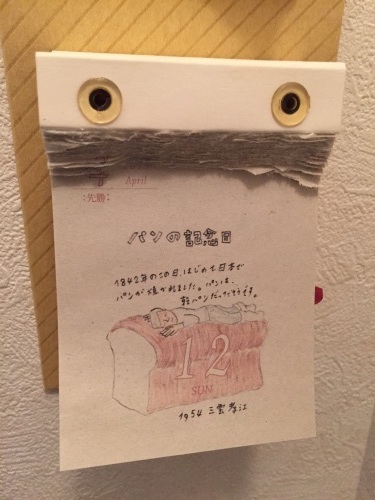 April
:先勝:
パンの記念日
1842年のこの日、はじめて日本で
パンが焼かれました。パンは、
乾パンだったそうです。
12
SUN
1954 三雲孝江